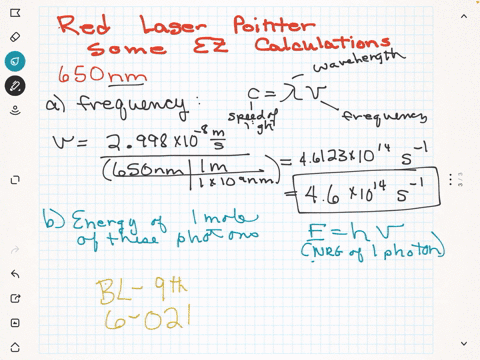 Red Laser Pointer
some EZ Calculations
650nm
wavelength
c = λν
speed of light
frequency
a) frequency:
ν = 2.998 x 10^-8 m/s / (650nm | 1m / 1 x 10^9 nm) = 4.6123 x 10^14 s^-1
= 4.6 x 10^14 s^-1
b) Energy of 1 mole
of these photons
E = hν
(NRG of 1 photon)
BL - 9th
6-021
3/3